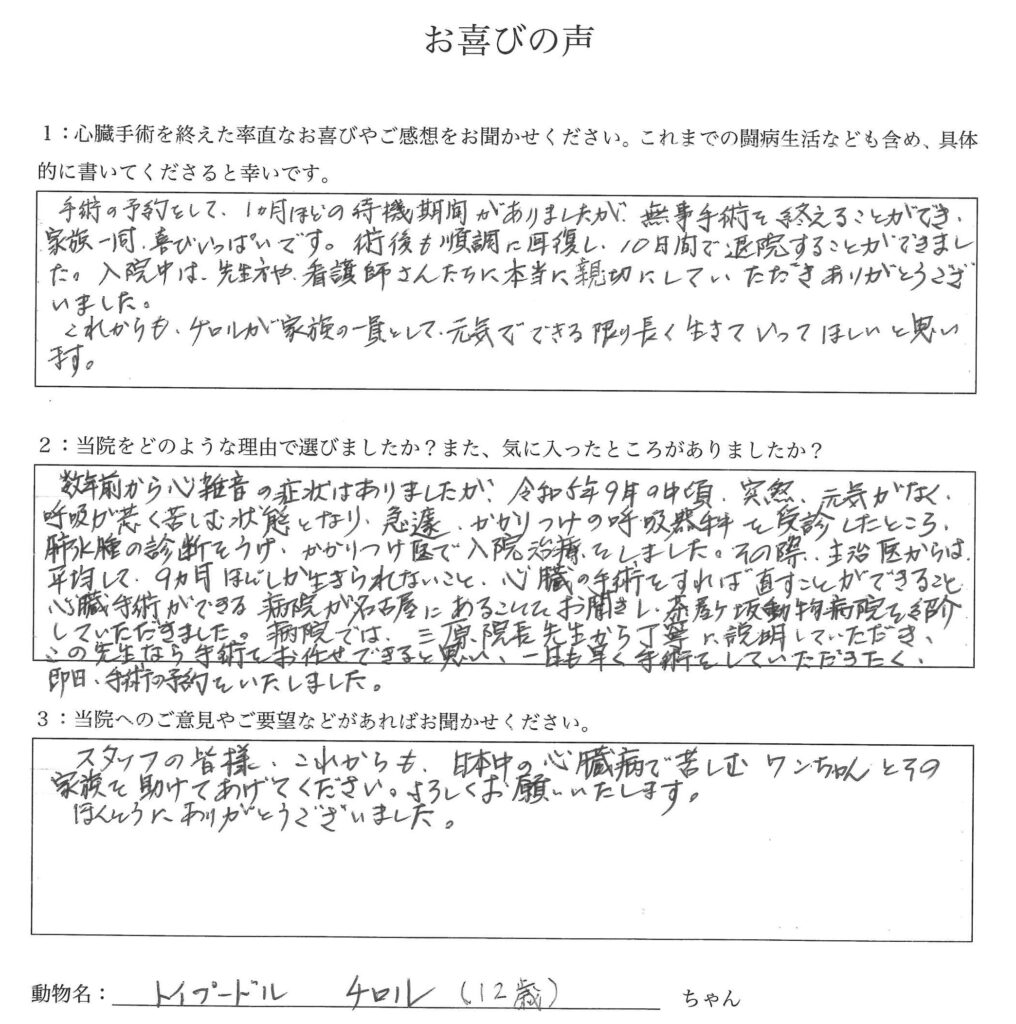 お喜びの声
１：心臓手術を終えた率直なお喜びやご感想をお聞かせください。これまでの闘病生活なども含め、具体
的に書いてくださると幸いです。
手術の予約をして、1ヵ月ほどの待機期間がありましたが、無事手術を終えることができ、
家族一同、喜びいっぱいです。術後も順調に回復し、10日間で退院することができまし
た。入院中は、先生方や、看護師さんたちに本当に親切にしていただきありがとうござ
いました。
これからも、チロルが家族の一員として、元気でできる限り長く生きていってほしいと思い
ます。
２：当院をどのような理由で選びましたか？また、気に入ったところがありましたか？
数年前から心雑音の症状はありましたが、令和5年9月の中頃、突然、元気がなく、
呼吸が荒く苦しむ状態となり、急遽、かかりつけの呼吸器科を受診したところ、
肺水腫の診断をうけ、かかりつけ医で入院治療をしました。その際、主治医からは
平均して、9ヵ月ほどしか生きられないこと、心臓の手術をすれば直すことができること
心臓手術ができる病院が名古屋にあることをお聞きし、茶屋ヶ坂動物病院を紹介
していただきました。病院では、三原院長先生から丁寧に説明していただき、
この先生なら手術をお任せできると思い、一日も早く手術をしていただきたく、
即日、手術の予約をいたしました。
３：当院へのご意見やご要望などがあればお聞かせください。
スタッフの皆様、これからも、日本中の心臓病で苦しむワンちゃんとその
家族を助けてあげてください。よろしくお願いいたします。
ほんとうにありがとうございました。
動物名：トイプードル　チロル（12歳）　ちゃん